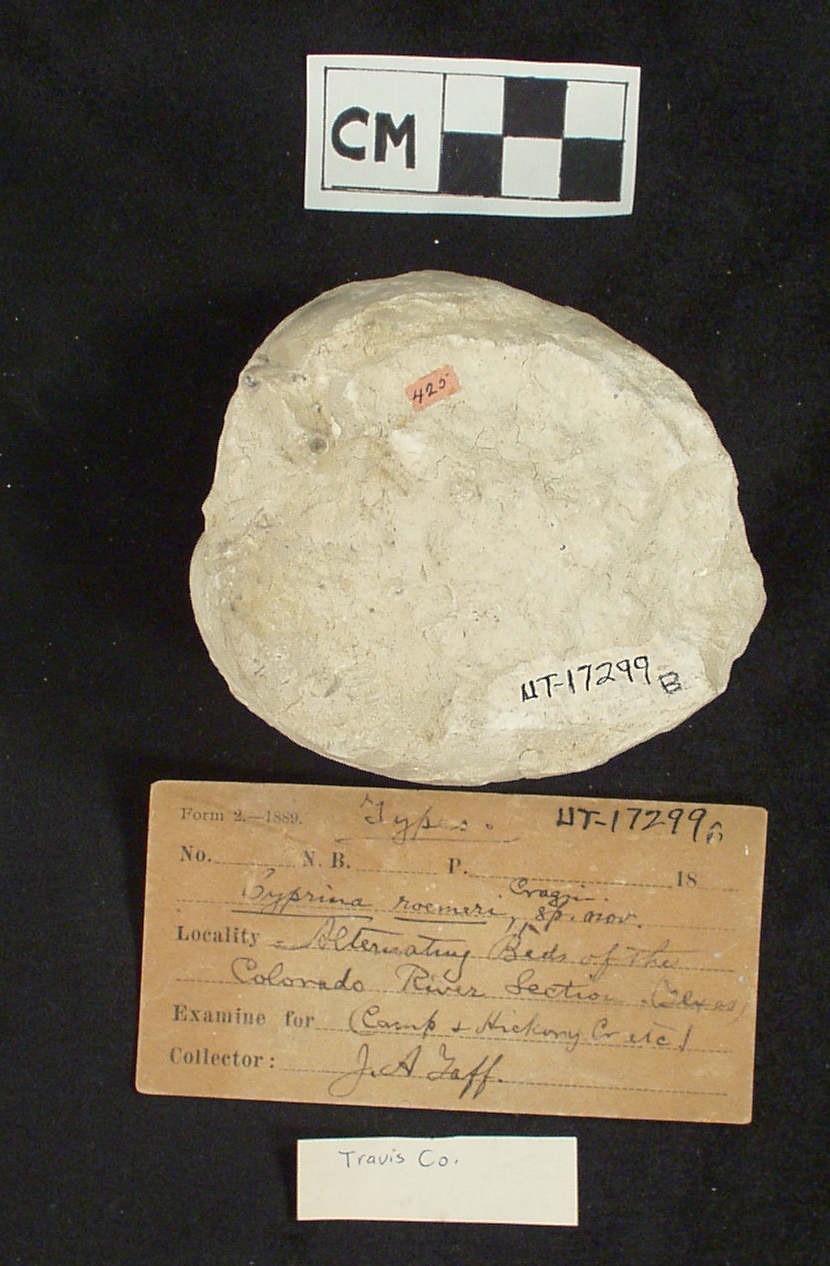 CM
425
UT-17299
B
Form 2.—1889. Types. UT-17299
No. N. B. P. 18
Cragin.
Cyprina roemeri, sp. nov.
Locality Alternating Beds of the
Colorado River Section. (Texas)
Examine for (Camp & Hickory Cr etc)
Collector: J. A Taff.
Travis Co.